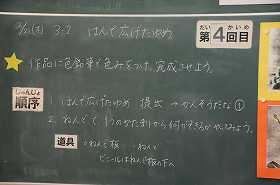 2/21(木) 3-2 はんで広げたゆめ
だい かいめ
第4回目
作品に色鉛筆で色みをつけ、完成させよう。
じゅんじょ
順序
1. はんで広げたゆめ 提出 → かんそうだな①
2. ねんどで 1つのかたまりから何ができるかやってみよう。
道具
○ねんど板 … ねんど
ビニールはねんど板の下へ